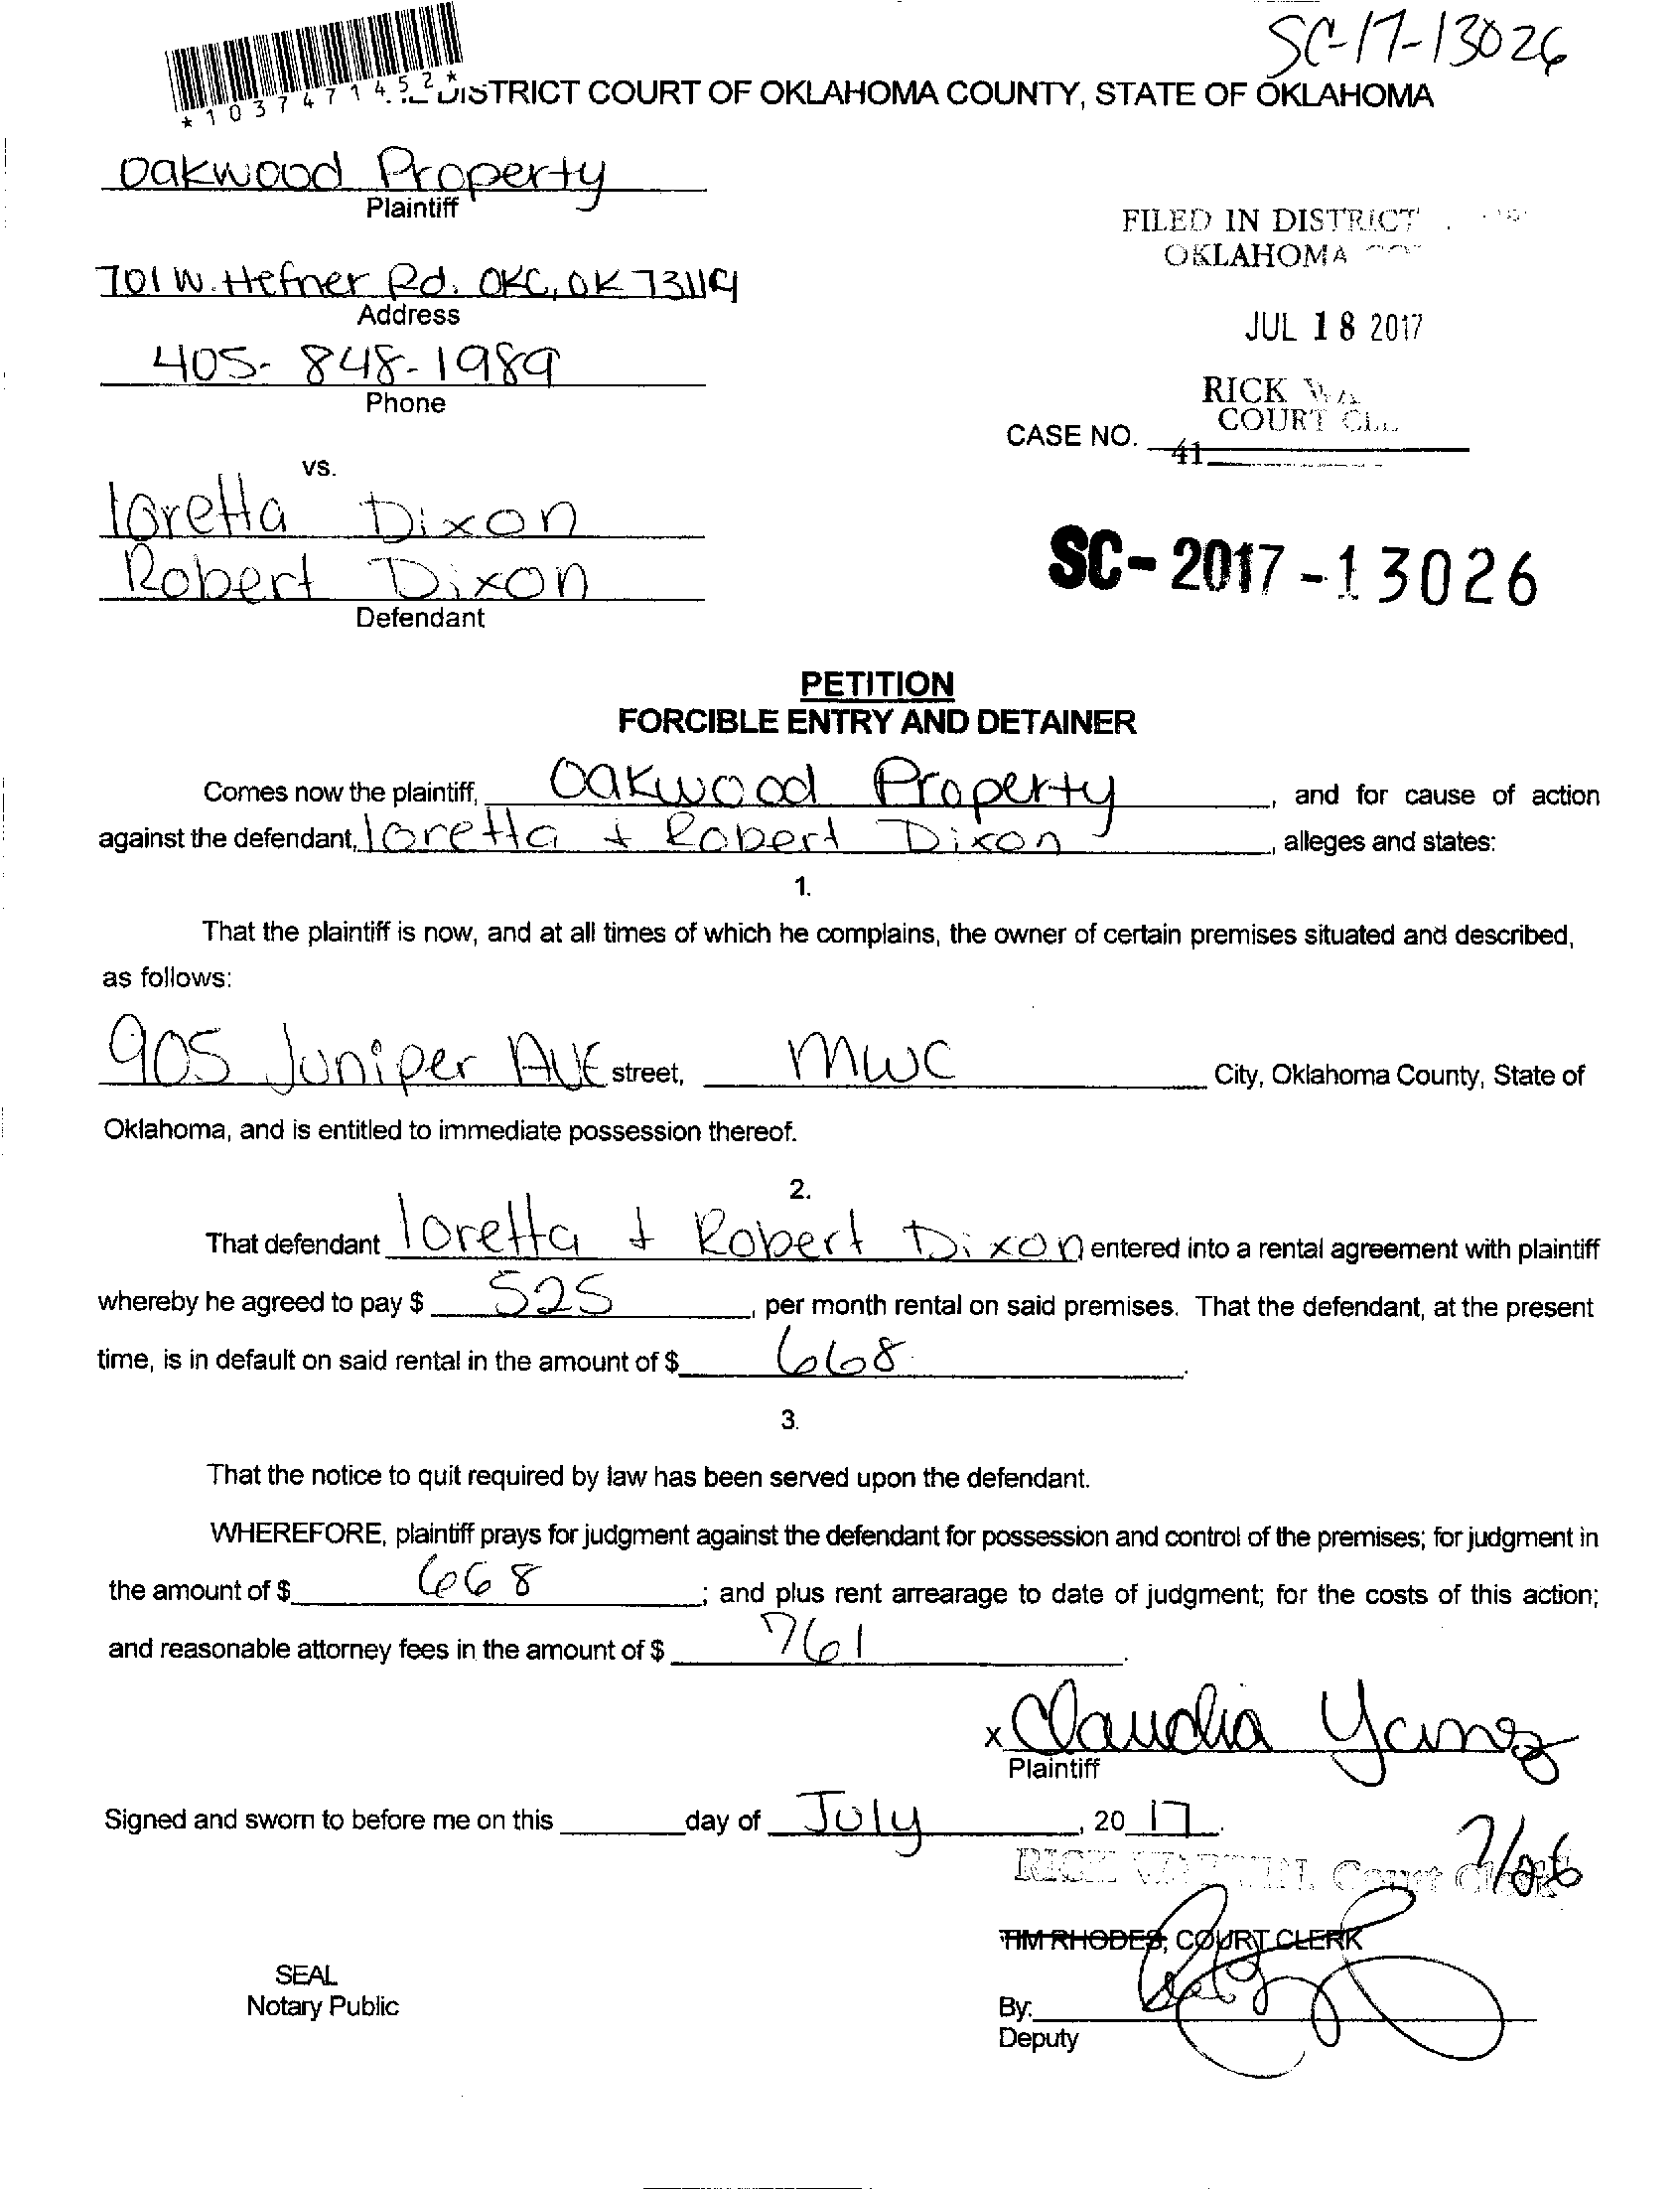 SC-17-13026
*1037471452*
DISTRICT COURT OF OKLAHOMA COUNTY, STATE OF OKLAHOMA
Oakwood Property
Plaintiff
701 W. Hefner Rd. OKC, OK 73114
Address
405-848-1989
Phone
FILED IN DISTRICT
OKLAHOMA
JUL 18 2017
RICK
COURT
CASE NO.
41
vs.
loretta Dixon
Robert Dixon
Defendant
SC-2017-13026
PETITION
FORCIBLE ENTRY AND DETAINER
Comes now the plaintiff, Oakwood Property, and for cause of action
against the defendant, loretta + Robert Dixon, alleges and states:
1.
That the plaintiff is now, and at all times of which he complains, the owner of certain premises situated and described,
as follows:
905 Juniper AVE street, MWC City, Oklahoma County, State of
Oklahoma, and is entitled to immediate possession thereof.
2.
That defendant loretta + Robert Dixon entered into a rental agreement with plaintiff
whereby he agreed to pay $ 525, per month rental on said premises. That the defendant, at the present
time, is in default on said rental in the amount of $ 668.
3.
That the notice to quit required by law has been served upon the defendant.
WHEREFORE, plaintiff prays for judgment against the defendant for possession and control of the premises; for judgment in
the amount of $ 668; and plus rent arrearage to date of judgment; for the costs of this action;
and reasonable attorney fees in the amount of $ 761.
x Claudia Yanez
Plaintiff
Signed and sworn to before me on this day of July, 20 17.
RICK WARREN, Court Clerk
7/26
TIM RHODES, COURT CLERK
SEAL
Notary Public
By:
Deputy